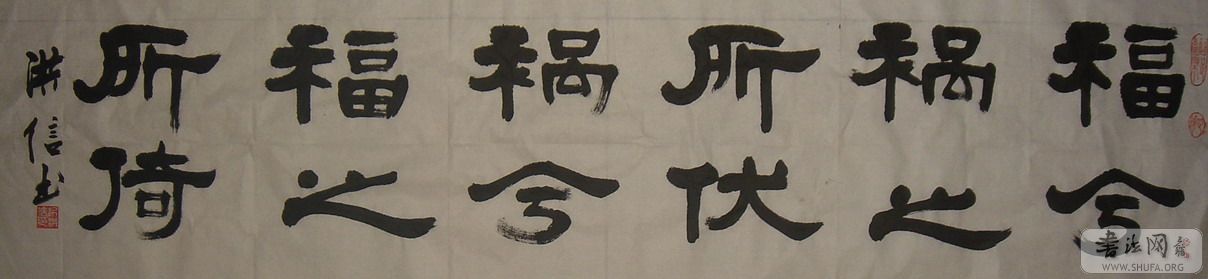 福兮
禍之
所伏
禍兮
福之
所倚
洪信书
書法网
WWW.SHUFA.ORG